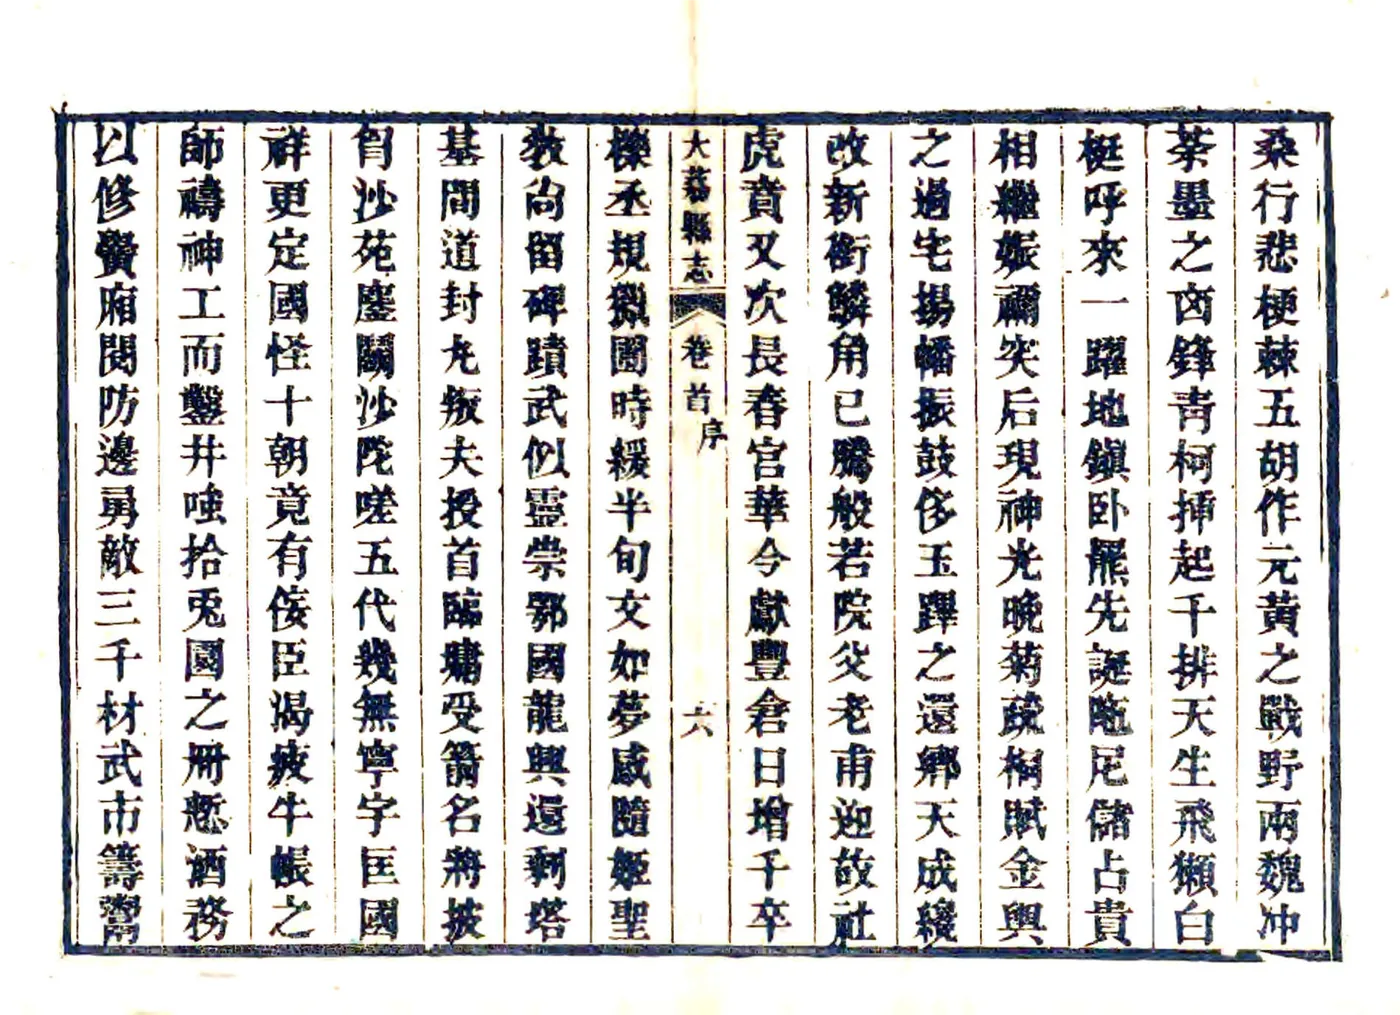 桑行悲梗棘五胡作元黃之戰野兩魏冲
荼墨之㐫鋒靑柯揷起千排天生飛獺白
梃呼來一躍地鎭卧羆先誕䧟尼儲占貴
相繼娠禰突后現神光晚菊疏桐賦金輿
之過宅揚幡振鼓侈玉蹕之還鄉天成纔
改新銜麟角已騰般若院父老甫迎故社
虎賁又次長春宮華今獻豐倉日增千卒
大荔縣志
卷首
序
六
櫟丞規獵圍時緩半旬文如夢感隨姬聖
敎尙留碑蹟武似靈崇鄂國龍興還剩塔
基間道封丸叛夫授首臨墉受箭名將披
胷沙苑鏖鬭沙陀嗟五代幾無寧宇匡國
祥更定國怪十朝竟有侫臣渴疲牛帳之
師禱神工而鑿井嗤拾兎園之冊慙酒務
以修黌廂閱防邊勇敵三千材武市籌鬻